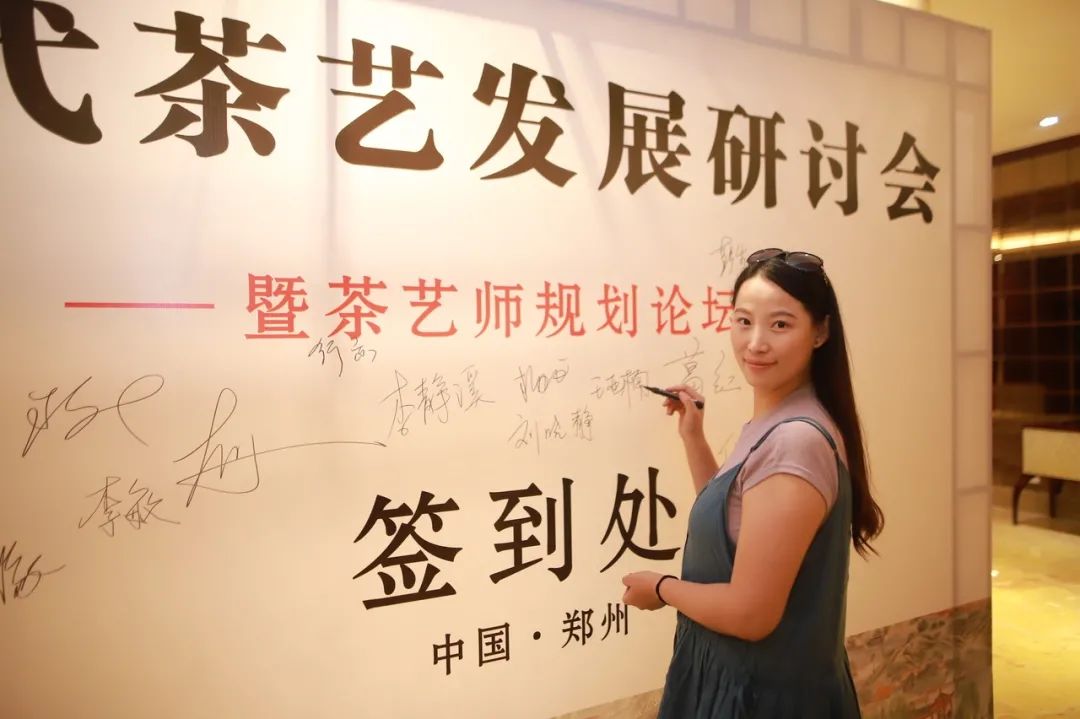 代茶艺发展研讨会
暨茶艺师规划论坛
李静溪
刘晓静
葛红
李敏
签到处
中国·郑州